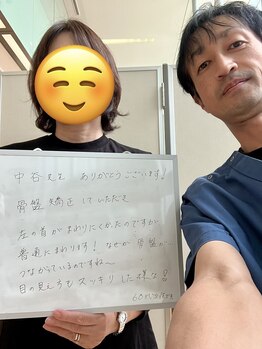 中谷先生 ありがとうございます。
骨盤矯正していただき
左の首がまわりにくかったのですが
普通にまわります!なぜか骨盤が…
つながっているのですね〜
目の見え方もスッキリした様な
60代